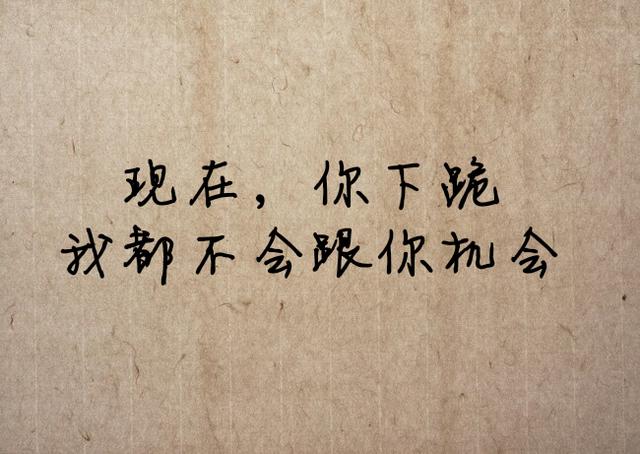 现在，你下跪
我都不会跟你机会